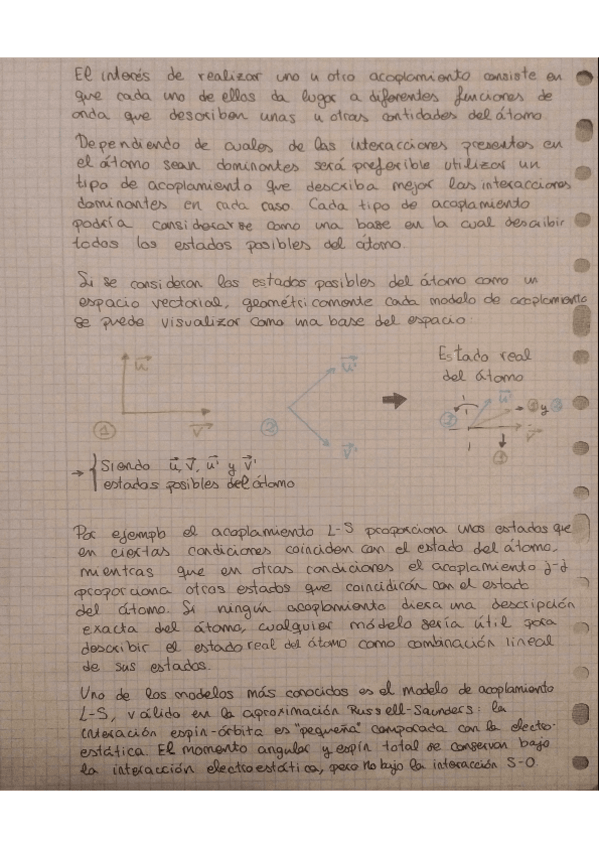 El interés de realizar uno u otro acoplamiento consiste en
que cada uno de ellos da lugar a diferentes funciones de
onda que describen unas u otras cantidades del átomo.
Dependiendo de cuales de las interacciones presentes en
el átomo sean dominantes será preferible utilizar un
tipo de acoplamiento que describa mejor las interacciones
dominantes en cada caso. Cada tipo de acoplamiento
podría considerarse como una base en la cual describir
todos los estados posibles del átomo.
Si se consideran los estados posibles del átomo como un
espacio vectorial, geométricamente cada modelo de acoplamiento
se puede visualizar como una base del espacio:
Estado real
del átomo
u
v
①
u'
v'
②
u'
① y ②
②
v
①
→ { Siendo u, v, u' y v'
estados posibles del átomo
Por ejemplo el acoplamiento L-S proporciona unos estados que
en ciertas condiciones coinciden con el estado del átomo,
mientras que en otras condiciones el acoplamiento j-j
proporciona otros estados que coincidirán con el estado
del átomo. Si ningún acoplamiento diera una descripción
exacta del átomo, cualquier módelo sería útil para
describir el estado real del átomo como combinación lineal
de sus estados.
Uno de los modelos más conocidos es el modelo de acoplamiento
L-S, válido en la aproximación Russell-Saunders: la
interación espín-órbita es "pequeña" comparada con la electro-
estática. El momento angular y espín total se conservan bajo
la interacción electroestática, pero no bajo la interacción S-O.